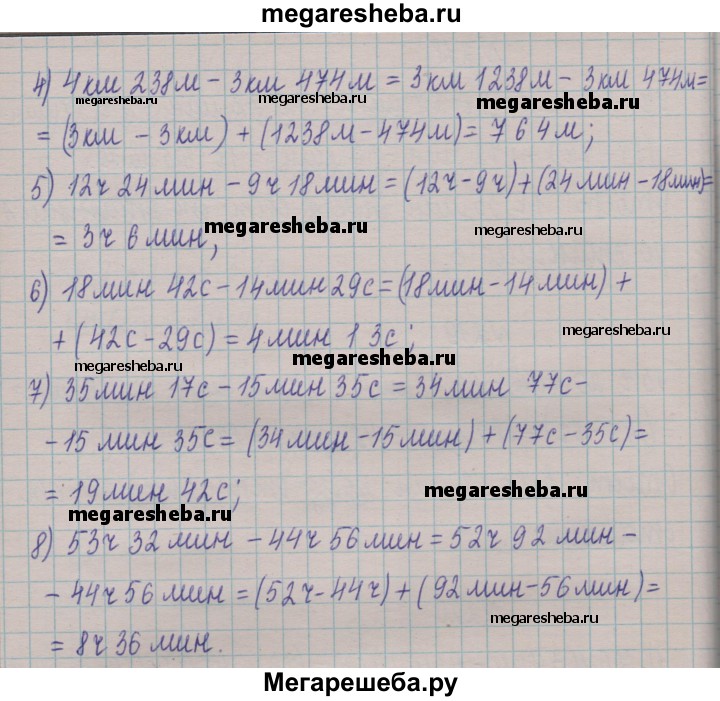 megaresheba.ru
4) 4км 238м - 3км 474м = 3км 1238м - 3км 474м=
megaresheba.ru megaresheba.ru megaresheba.ru
= (3км - 3км) + (1238м-474м)= 764м;
5) 12ч 24мин - 9ч 18мин = (12ч-9ч)+(24мин-18мин)=
= 3ч 6мин; megaresheba.ru megaresheba.ru
6) 18мин 42с-14мин 29с=(18мин-14мин) +
+ (42с-29с) = 4мин 13с; megaresheba.ru
megaresheba.ru megaresheba.ru
7) 35мин 17с -15мин 35с = 34мин 77с-
-15 мин 35с= (34мин-15мин)+(77с-35с)=
= 19мин 42с; megaresheba.ru
megaresheba.ru
8) 53ч 32мин - 44ч 56мин = 52ч 92мин -
- 44ч 56 мин =(52ч-44ч)+(92мин-56мин)=
= 8ч 36 мин. megaresheba.ru megaresheba.ru
Мегарешеба.ру